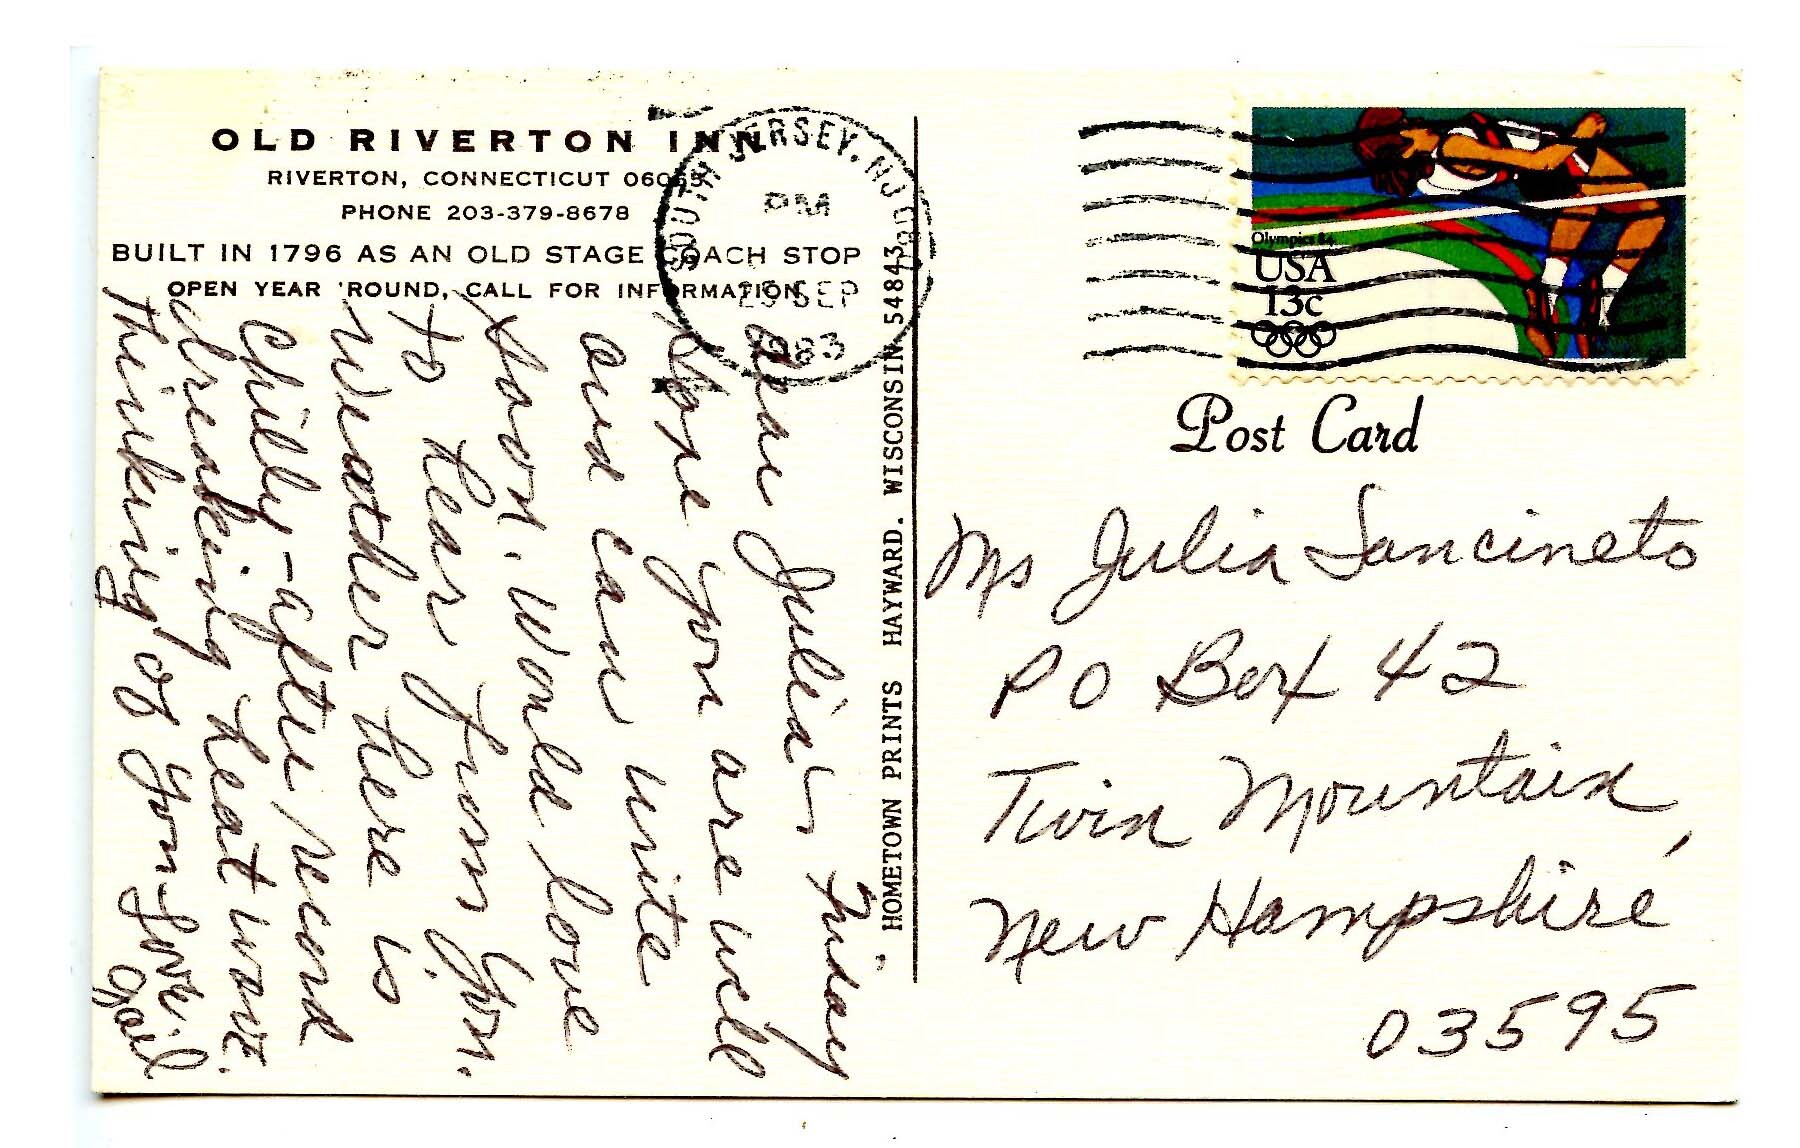 OLD RIVERTON INN
RIVERTON, CONNECTICUT 06065
PHONE 203-379-8678
BUILT IN 1796 AS AN OLD STAGE COACH STOP
OPEN YEAR 'ROUND, CALL FOR INFORMATION
SOUTH JERSEY, NJ
PM
SEP
1983
Friday
Dear Julia -
Hope you are well
and can write
soon. Would love
to hear from you.
Weather here is
chilly - after record
breaking heat wave.
Thinking of you - Love
Gail
HOMETOWN PRINTS HAYWARD. WISCONSIN 54843
Olympics 84
USA
13c
Post Card
Ms Julia Sancineto
PO Box 42
Twin Mountain,
New Hampshire
03595